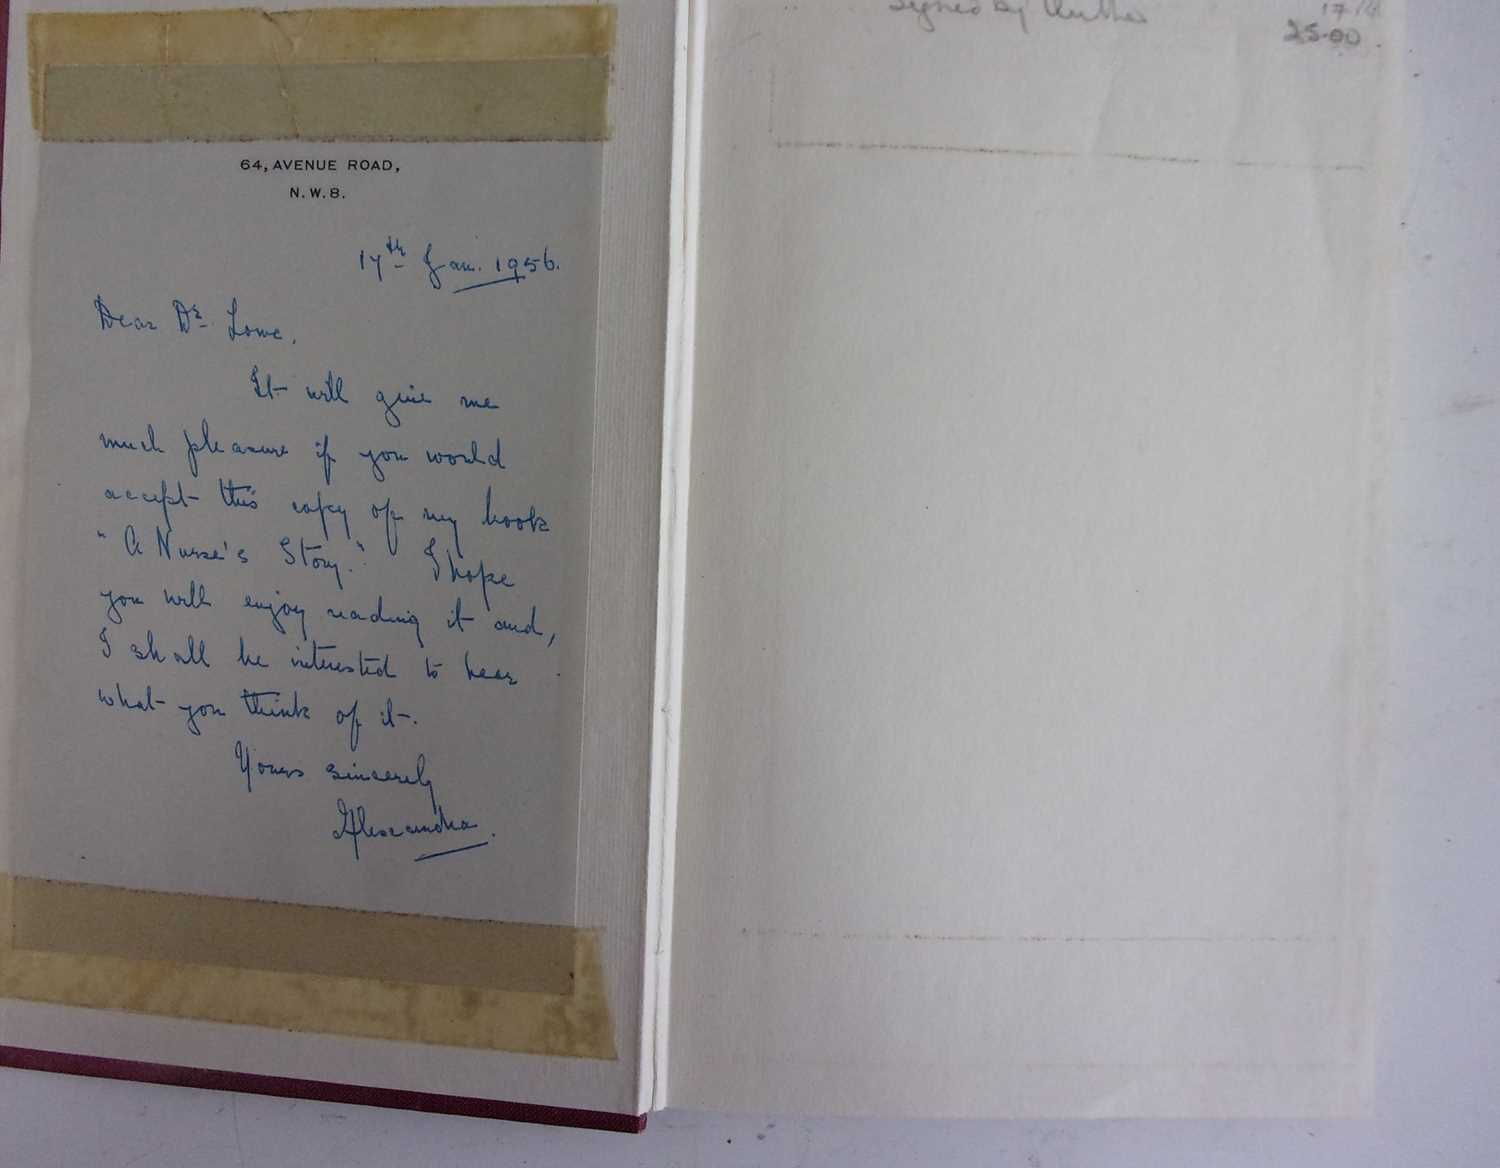 64, AVENUE ROAD,
N.W.8.
17th Jan. 1956.
Dear Dr. Lowe,
It will give me
much pleasure if you would
accept this copy of my book
"A Nurse's Story." I hope
you will enjoy reading it and,
I shall be interested to hear
what you think of it.
Yours sincerely
Alexandra.
Signed by Author
25-00